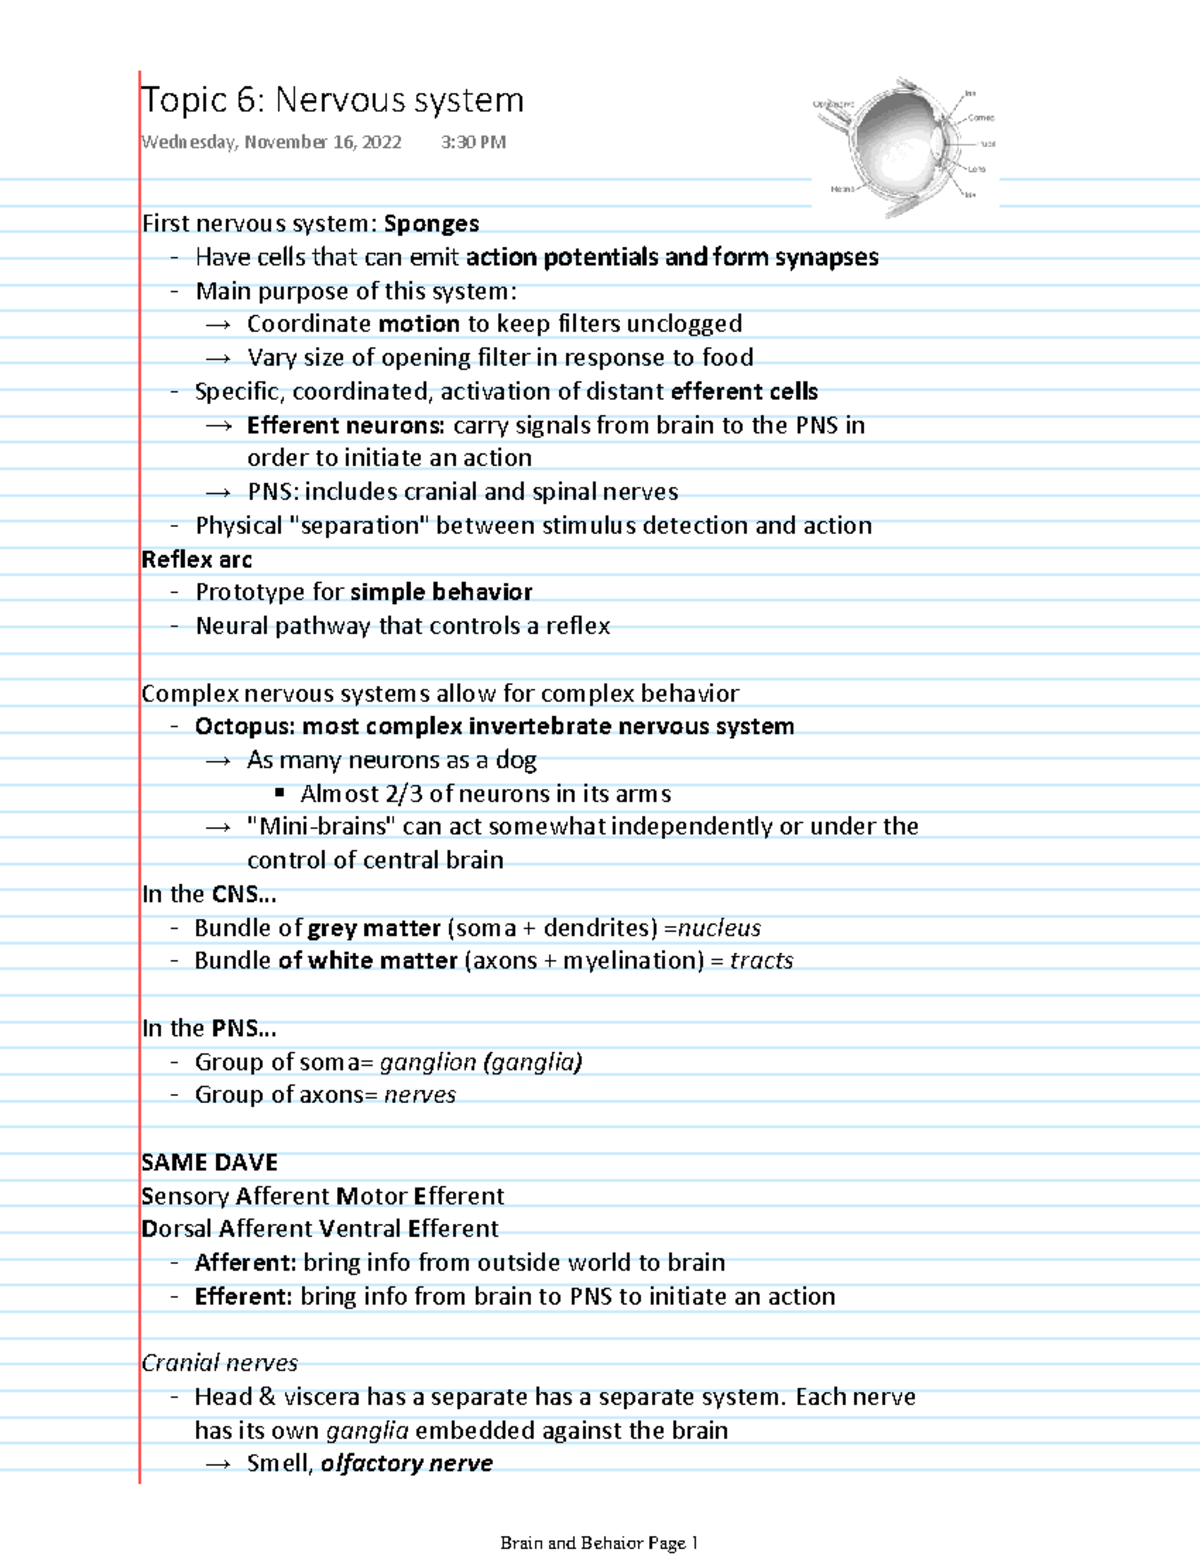 Topic 6: Nervous system
Wednesday, November 16, 2022 3:30 PM
Cornea
Lens
First nervous system: Sponges
- Have cells that can emit action potentials and form synapses
- Main purpose of this system:
→ Coordinate motion to keep filters unclogged
→ Vary size of opening filter in response to food
- Specific, coordinated, activation of distant efferent cells
→ Efferent neurons: carry signals from brain to the PNS in
order to initiate an action
→ PNS: includes cranial and spinal nerves
- Physical "separation" between stimulus detection and action
Reflex arc
- Prototype for simple behavior
- Neural pathway that controls a reflex
Complex nervous systems allow for complex behavior
- Octopus: most complex invertebrate nervous system
→ As many neurons as a dog
▪ Almost 2/3 of neurons in its arms
→ "Mini-brains" can act somewhat independently or under the
control of central brain
In the CNS...
- Bundle of grey matter (soma + dendrites) =nucleus
- Bundle of white matter (axons + myelination) = tracts
In the PNS...
- Group of soma= ganglion (ganglia)
- Group of axons= nerves
SAME DAVE
Sensory Afferent Motor Efferent
Dorsal Afferent Ventral Efferent
- Afferent: bring info from outside world to brain
- Efferent: bring info from brain to PNS to initiate an action
Cranial nerves
- Head & viscera has a separate has a separate system. Each nerve
has its own ganglia embedded against the brain
→ Smell, olfactory nerve
Brain and Behaior Page 1